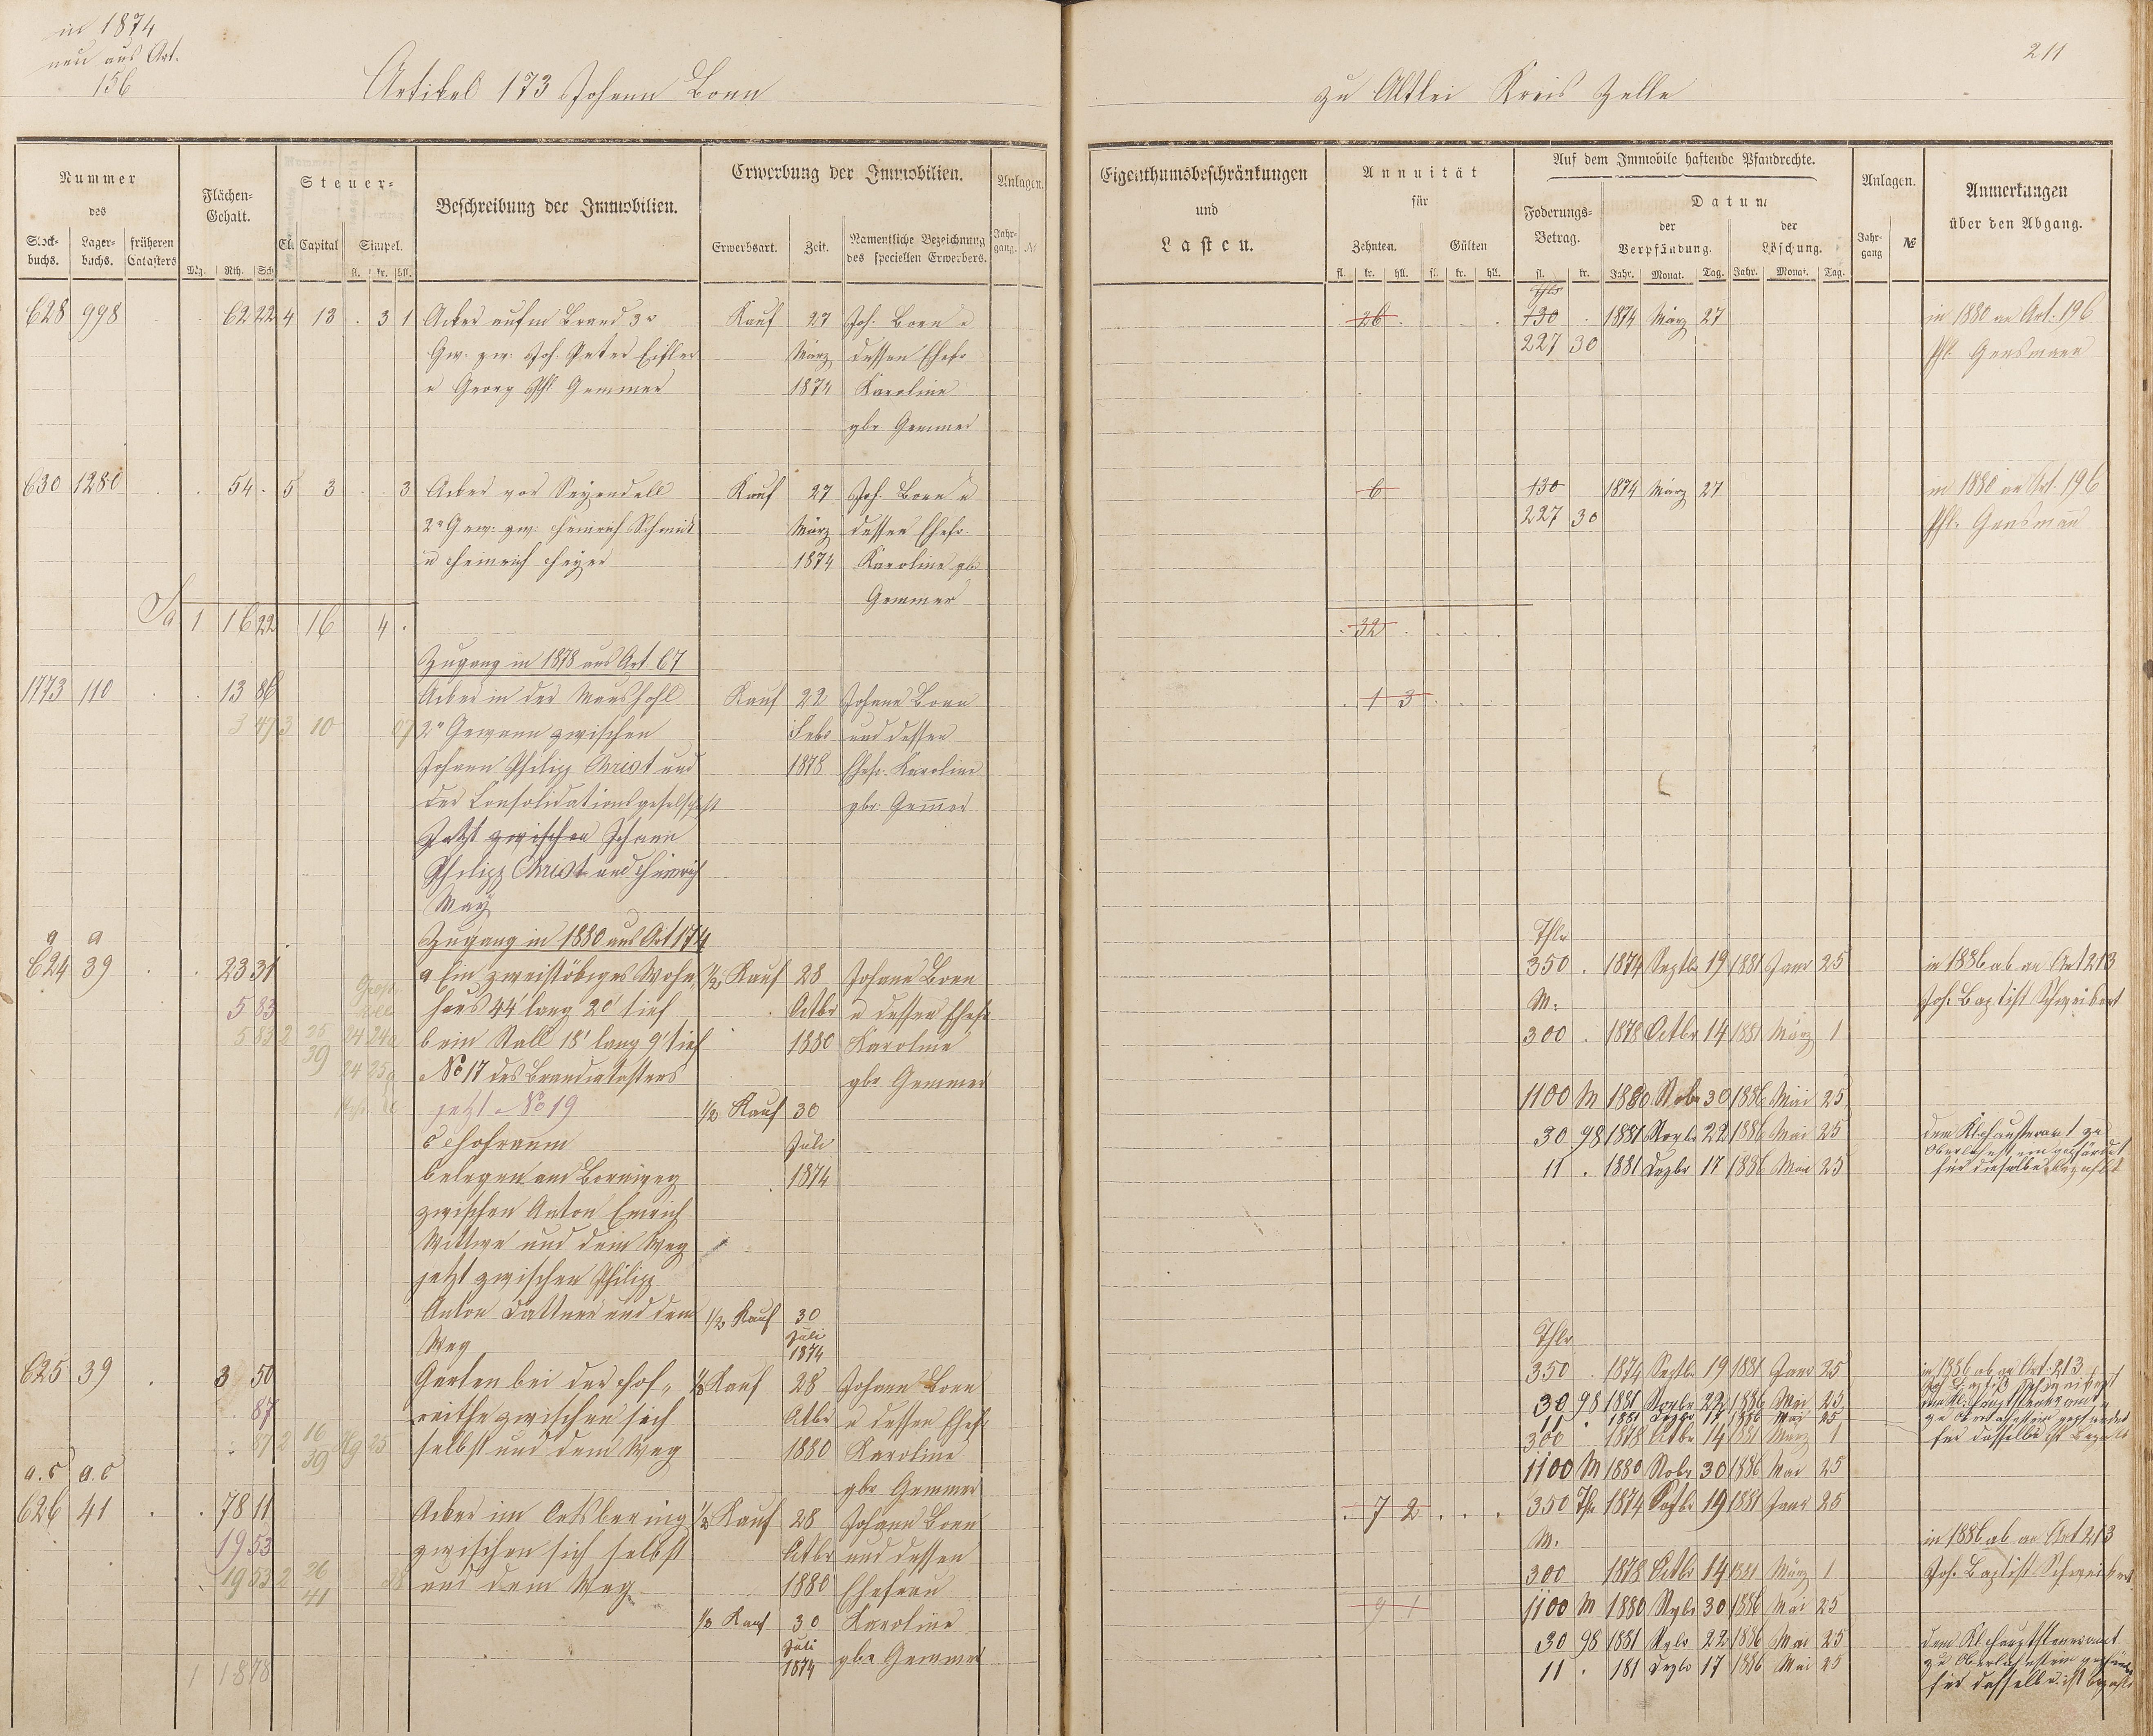 in 1874
neu aus Art.
156
Artikel 173 Johann Born
zu Altlei Kreis Zelle
211
Nummer
des
Stock-
buchs.
Lager-
buchs.
früheren
Catasters
Flächen-
Gehalt.
Mg. Rth. Sch.
Steuer-
Cl. Capital Simpel.
fl. kr. hll.
Beschreibung der Immobilien.
Erwerbung der Immobilien.
Erwerbsart. Zeit. Namentliche Bezeichnung
des speciellen Erwerbers.
Anlagen.
Jahr-
gang. №
Eigenthumsbeschränkungen
und
Lasten.
Annuität
für
Zehnten. Gülten
fl. kr. hll. fl. kr. hll.
Auf dem Immobile haftende Pfandrechte.
Foderungs-
Betrag.
fl. kr.
Datum
der
Verpfändung.
der
Löschung.
Jahr. Monat. Tag. Jahr. Monat. Tag.
Anlagen.
Jahr-
gang №
Anmerkungen
über den Abgang.
628 998 62 22 4 13 . 3 1 Acker aufm Brand 3r Kauf 27 Joh. Born u 26 130 1874 März 27 in 1880 an Art. 196
Gw. zw. Joh. Peter Eisler März dessen Ehefr 227 30 Phl. Gensmann
u Georg Phl Gemmer 1874 Karoline
gbr Gemmer
630 1280 54 5 3 3 Acker vor Kauf 27 Joh. Born u 6 130 1874 März 27 in 1880 an Art. 196
2r Gew. zw. Heinrich Schmidt März dessen Ehefr. 227 30 Phl. Gensmann
u Heinrich Heyer 1874 Karoline gbr
Gemmer
Sa 1 16 22 16 4 . 32
Zugang in 1878 aus Art 67
1773 110 13 86 Acker in der Kauf 22 Johann Born 1 3
3 47 3 10 07 2r Gewann zwischen Febr und dessen
Johann Philipp Christ und 1878 Ehefr. Karoline
der Consolidationsgesellschaft gbr. Gemmer
Jetzt zwischen Johann
Philipp Christ und Heinrich
May
Zugang in 1880 aus Art 174 Thlr
a a
624 39 23 31 a Ein zweistöckiges Wohn- ½ Kauf 28 Johann Born 350 . 1874 Septbr 19 1881 Janr 25 in 1886 ab an Art 213
5 83 haus 44' lang 20' tief Octbr u dessen Ehefr M. Joh. Baptist Schweibert
5 83 2 35 24 24a b ein Stall 18' lang 9' tief 1880 Karoline 300 . 1878 Octbr 14 1881 März 1
39 24 25a No 17 des Brandcatasters gbr Gemmer
jetzt No 19 ½ Kauf 30 1100 M 1880 Nobr 30 1886 Mai 25
c Hofraum Juli 30 98 1881 Novbr 22 1886 Mai 25 dem Kl. zu
belegen am Bornweg 1874 11 . 1881 Dezbr 17 1886 Mai 25 für dieselbe bezahlt
zwischen Anton Emrich
Wittwe und dem Weg
jetzt zwischen Philipp
Anton Dattner und dem ½ Kauf 30
Weg Juli
1874 Thlr
625 39 3 50 Garten bei der Hof- ½ Kauf 28 Johann Born 350 . 1874 Septbr 19 1881 Janr 25 in 1886 ab an Art. 213
87 reithe zwischen sich Octbr u dessen Ehefr 30 98 1881 Novbr 22 1886 Mai 25
87 2 16 25 selbst und dem Weg 1880 Karoline 11 . 1881 Dezbr 17 1886 Mai 25
39 300 1878 Octbr 14 1881 März 1 für dasselbe ist bezahlt
a.c a.c gbr Gemmer 1100 M 1880 Nobr 30 1886 Mai 25
626 41 78 11 Acker im ½ Kauf 28 Johann Born 7 2 350 Thr 1874 Septbr 19 1881 Janr 25
19 53 zwischen sich selbst Octbr und dessen M. in 1886 ab an Art 213
19 53 2 26 28 und dem Weg 1880 Ehefrau 300 1878 Octbr 14 1881 März 1 Joh. Baptist Schweibert
41 ½ Kauf 30 Karoline 9 1 1100 M 1880 Novbr 30 1886 Mai 25
Juli gbr Gemmer 30 98 1881 Novbr 22 1886 Mai 25 dem Kl. Hauptsteueramt
1 18 78 1874 11 . 181 Dezbr 17 1886 Mai 25 zu Oberlahnstein
für dasselbe ist bezahlt